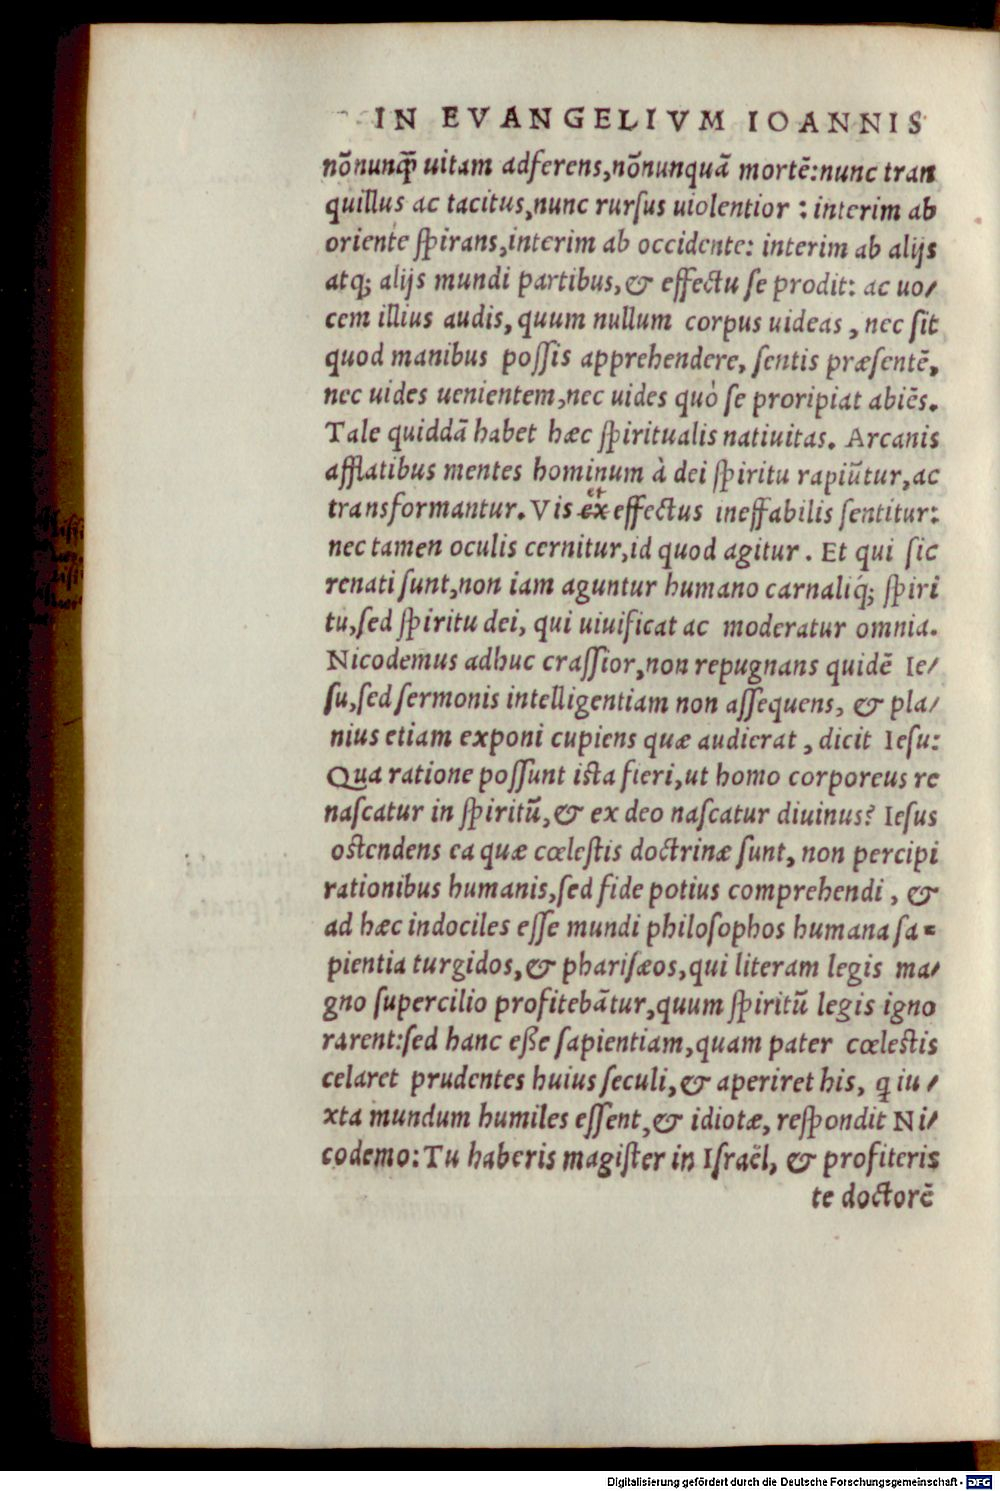 IN EVANGELIVM IOANNIS
nõnunq̃ uitam adferens,nõnunquã mortẽ:nunc tran
quillus ac tacitus,nunc rurſus uiolentior : interim ab
oriente ſpirans,interim ab occidente: interim ab alijs
atq; alijs mundi partibus,& effectu ſe prodit: ac uo/
cem illius audis, quum nullum corpus uideas , nec ſit
quod manibus poſſis apprehendere, ſentis præſentẽ,
nec uides uenientem,nec uides quò ſe proripiat abiẽs.
Tale quiddã habet hæc ſpiritualis natiuitas. Arcanis
afflatibus mentes hominum à dei ſpiritu rapiũtur,ac
et
transformantur. Vis ex effectus ineffabilis ſentitur:
nec tamen oculis cernitur,id quod agitur . Et qui ſic
renati ſunt,non iam aguntur humano carnaliq́; ſpiri
tu,ſed ſpiritu dei, qui uiuificat ac moderatur omnia.
Nicodemus adhuc craſſior,non repugnans quidẽ Ie/
ſu,ſed ſermonis intelligentiam non aſſequens, & pla/
nius etiam exponi cupiens quæ audierat , dicit Ieſu:
Qua ratione poſſunt iſta fieri,ut homo corporeus re
naſcatur in ſpiritũ,& ex deo naſcatur diuinus? Ieſus
oſtendens ea quæ cœleſtis doctrinæ ſunt, non percipi
rationibus humanis,ſed fide potius comprehendi , &
ad hæc indociles eſſe mundi philoſophos humana ſa=
pientia turgidos,& phariſæos,qui literam legis ma/
gno ſupercilio profitebãtur,quum ſpiritũ legis igno
rarent:ſed hanc eße ſapientiam,quam pater cœleſtis
celaret prudentes huius ſeculi,& aperiret his, q iu/
xta mundum humiles eſſent,& idiotæ, reſpondit Ni/
codemo:Tu haberis magiſter in Iſraël, & profiteris
te doctorẽ
Digitalisierung gefördert durch die Deutsche Forschungsgemeinschaft - DFG